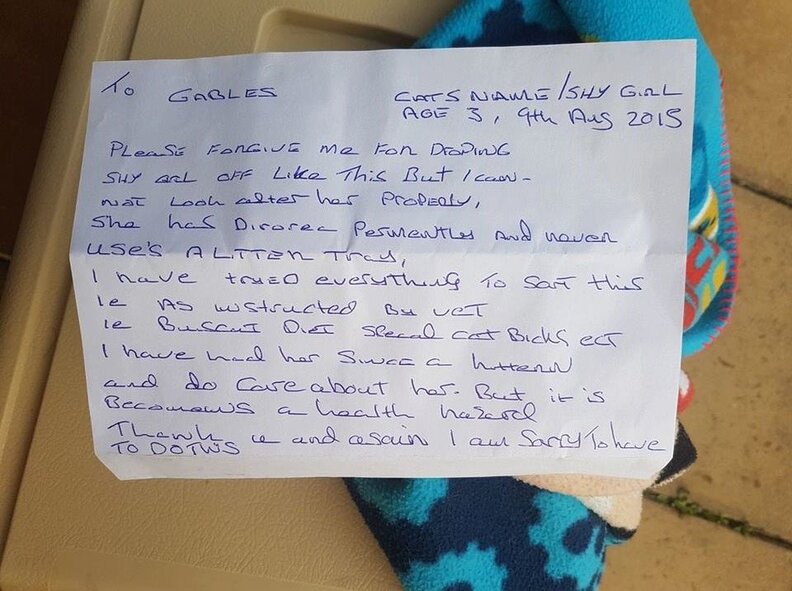 To GABLES CATS NAME/SHY GIRL
AGE 3, 9th Aug 2015
PLEASE FORGIVE me FOR DROPING
SHY GIRL OFF Like This But I can-
NOT Look after her PROPERLY,
She has Dirorea Permently and never
USE'S A LITTER TRAY,
I have tRIED everything To Sort this
ie AS instructed By VET
ie Buscut DIET Specal cat Bicks ect
I have had her Since a kitten
and do Care about her. But it is
Becomeing a health hazard
Thank u and again I am Sorry To have
TO DO THIS